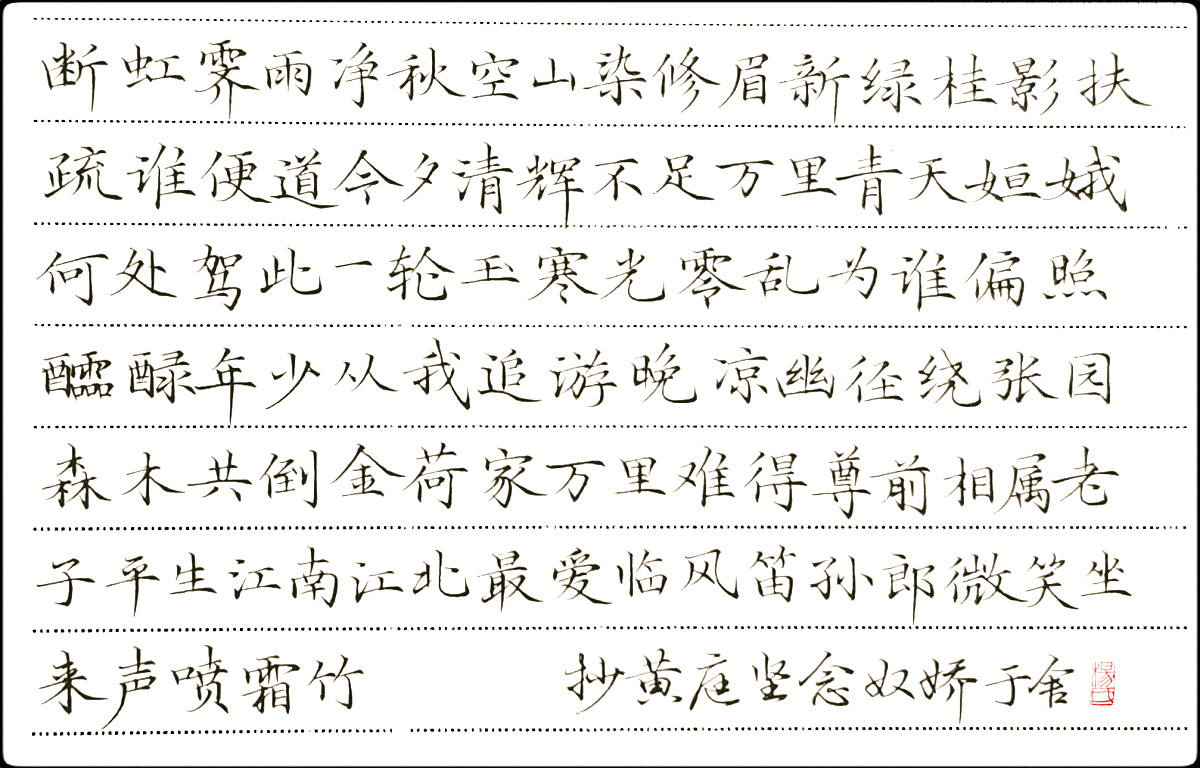 断虹霁雨净秋空山染修眉新绿桂影扶
疏谁便道今夕清辉不足万里青天姮娥
何处驾此一轮玉寒光零乱为谁偏照
醽醁年少从我追游晚凉幽径绕张园
森木共倒金荷家万里难得尊前相属老
子平生江南江北最爱临风笛孙郎微笑坐
来声喷霜竹 抄黄庭坚念奴娇于舍
楊氏